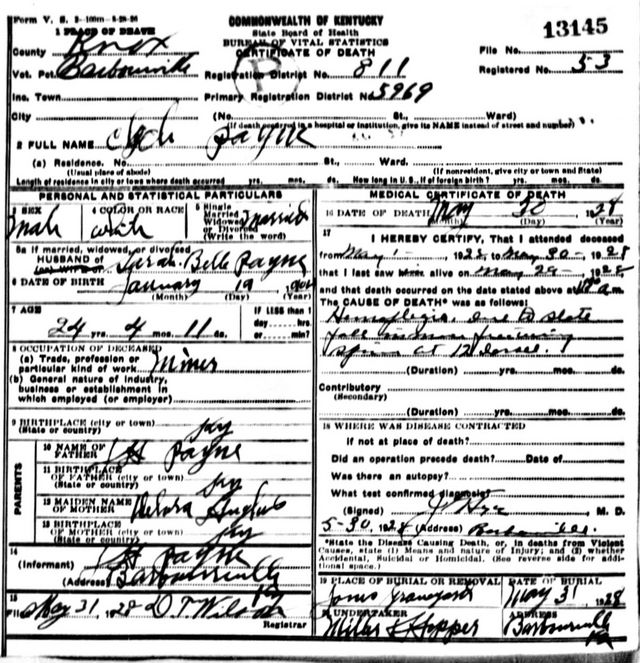 Form V. S.
COMMONWEALTH OF KENTUCKY
State Board of Health
BUREAU OF VITAL STATISTICS
CERTIFICATE OF DEATH
13145
1 PLACE OF DEATH
County Knox
File No.
Vot. Pct. Barbourville
Registration District No. 811
Registered No. 53
Inc. Town
Primary Registration District No. 5969
City
(No. St., Ward)
(If death occurred in a hospital or institution, give its NAME instead of street and number)
2 FULL NAME Payne
(a) Residence. No. St., Ward.
(Usual place of abode) (If nonresident, give city or town and State)
Length of residence in city or town where death occurred yrs. mos. ds. How long in U.S., if of foreign birth? yrs. mos. ds.
PERSONAL AND STATISTICAL PARTICULARS
3 SEX
male
4 COLOR OR RACE
white
5 Single
Married
Widowed
or Divorced
(Write the word)
married
5a If married, widowed, or divorced
HUSBAND of
(or) WIFE of
Sarah Belle Payne
6 DATE OF BIRTH January 19 1904
(Month) (Day) (Year)
7 AGE
24 yrs. 4 mos. 11 ds.
IF LESS than 1
day----hrs.
or----min?
8 OCCUPATION OF DECEASED
(a) Trade, profession or
particular kind of work Miner
(b) General nature of industry,
business or establishment in
which employed (or employer)
9 BIRTHPLACE (city or town)
(State or country) Ky
PARENTS
10 NAME OF
FATHER Payne
11 BIRTHPLACE
OF FATHER (city or town)
(State or country) Ky
12 MAIDEN NAME
OF MOTHER
13 BIRTHPLACE
OF MOTHER (city or town)
(State or country) Ky
14
(Informant) Payne
(Address) Barbourville
Ky
15
Filed May 31 1928 D T Wilson
Registrar
MEDICAL CERTIFICATE OF DEATH
16 DATE OF DEATH May 30 1928
(Month) (Day) (Year)
17
I HEREBY CERTIFY, That I attended deceased
from May 1 1928, to May 30 - 1928
that I last saw him alive on May 29 - 1928
and that death occurred on the date stated above at a m.
The CAUSE OF DEATH* was as follows:
slate
fall in mine fracturing
spine at 12 dorsal.
(Duration) yrs. mos. ds.
Contributory
(Secondary)
(Duration) yrs. mos. ds.
18 WHERE WAS DISEASE CONTRACTED
If not at place of death?
Did an operation precede death? Date of
Was there an autopsy?
What test confirmed diagnosis?
(Signed) M. D.
5-30, 1928 (Address) Barbourville.
*State the Disease Causing Death, or, in deaths from Violent
Causes, state (1) Means and nature of Injury; and (2) whether
Accidental, Suicidal or Homicidal. (See reverse side for addi-
tional space.)
19 PLACE OF BURIAL OR REMOVAL
Jones Graveyard
DATE OF BURIAL
May 31 1928
20 UNDERTAKER
Miller & Hopper
ADDRESS
Barbourville
Ky